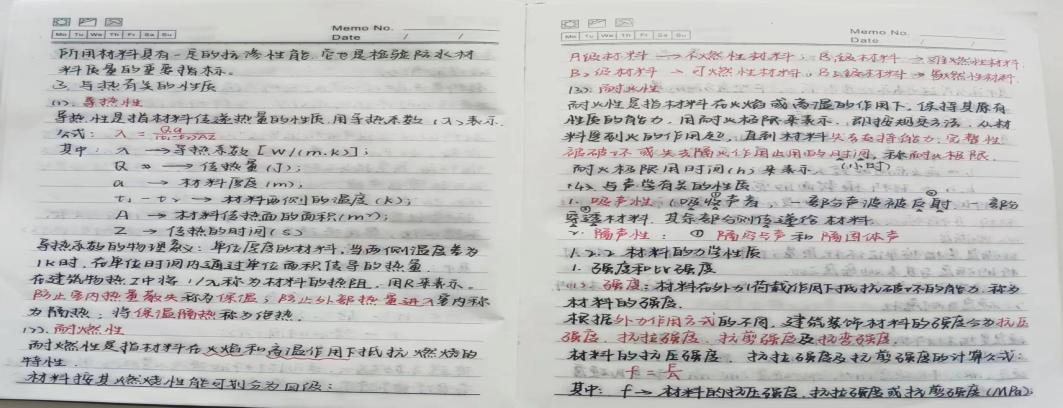 Memo No.
Mo Tu We Th Fr Sa Su
Date / /
所用材料具有一定的抗渗性能,它也是检验防水材
料质量的重要指标。
三、与热有关的性质
(1). 导热性
导热性是指材料传递热量的性质,用导热系数(λ)表示.
公式: λ = Qa/(t₁-t₂)AZ
其中: λ → 导热系数[W/(m.k)];
Q → 传热量(J);
a → 材料厚度(m),
t₁-t₂ → 材料两侧的温度(K);
A → 材料传热面的面积(m²);
Z → 传热的时间(s)
导热系数的物理意义: 单位厚度的材料,当两侧温度差为
1K时,在单位时间内通过单位面积传导的热量.
在建筑物热工中将1/λ称为材料的热阻,用R来表示.
防止室内热量散失称为保温;防止外部热量进入室内称
为隔热;将保温隔热称为绝热.
(2). 耐燃性
耐燃性是指材料在火焰和高温作用下抵抗燃烧的
特性.
材料按其燃烧性能可划分为四级:
Memo No.
Mo Tu We Th Fr Sa Su
Date / /
A级材料 → 不燃性材料; B₁级材料 → 难燃性材料
B₂级材料 → 可燃性材料, B₃级材料 → 易燃性材料.
(3). 耐火性
耐火性是指材料在火焰或高温的作用下,保持其原有
性质的能力,用耐火极限来表示,即按规定方法,从材
料受到火的作用起,直到材料失去支持能力,完整性
被破坏或失去隔火作用止用的时间,称耐火极限.
耐火极限用时间(h)来表示 (小时)
(4). 与声学有关的性质
1. 吸声性: ①吸收声音 一部分声波被反射 ② 一部分
穿透材料, 其余部分则传递给材料 ③
2. 隔声性: ① 隔空气声和隔固体声
1.2.2 材料的力学性质
1. 强度和比强度
(1). 强度: 材料在外力(荷载)作用下抵抗破坏的能力,称为
材料的强度.
根据外力作用方式的不同,建筑装饰材料的强度分为抗压
强度、抗拉强度、抗剪强度及抗弯强度
材料的抗压强度、抗拉强度及抗剪强度的计算公式:
f = F/A
其中: f → 材料的抗压强度,抗拉强度或抗剪强度(MPa);